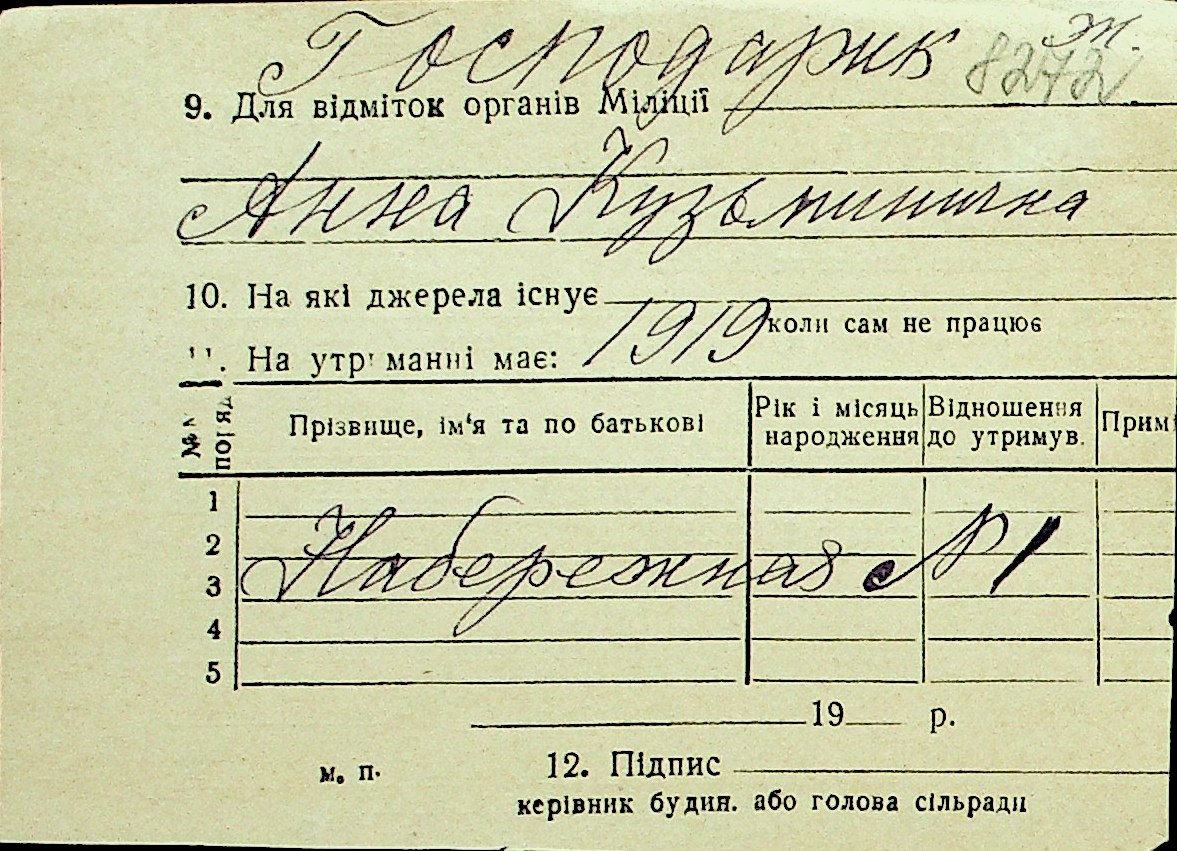 Господарик ж.
8272
9. Для відміток органів Міліції
Анна Кузьминична
10. На які джерела існує
1919 коли сам не працює
11. На утриманні має:
№№ поряд Прізвище, ім'я та по батькові Рік і місяць народження Відношення до утримув. Примі
1
2
Набережная №1
3
4
5
19 р.
м. п. 12. Підпис
керівник будин. або голова сільради